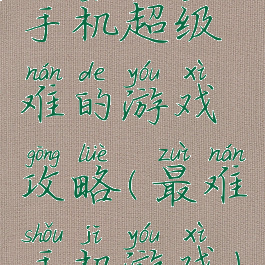 手机超级
nán de yóu xì
难的游戏
gōng lüè zuì nán
攻略(最难
shǒu jī yóu xì
手机游戏)